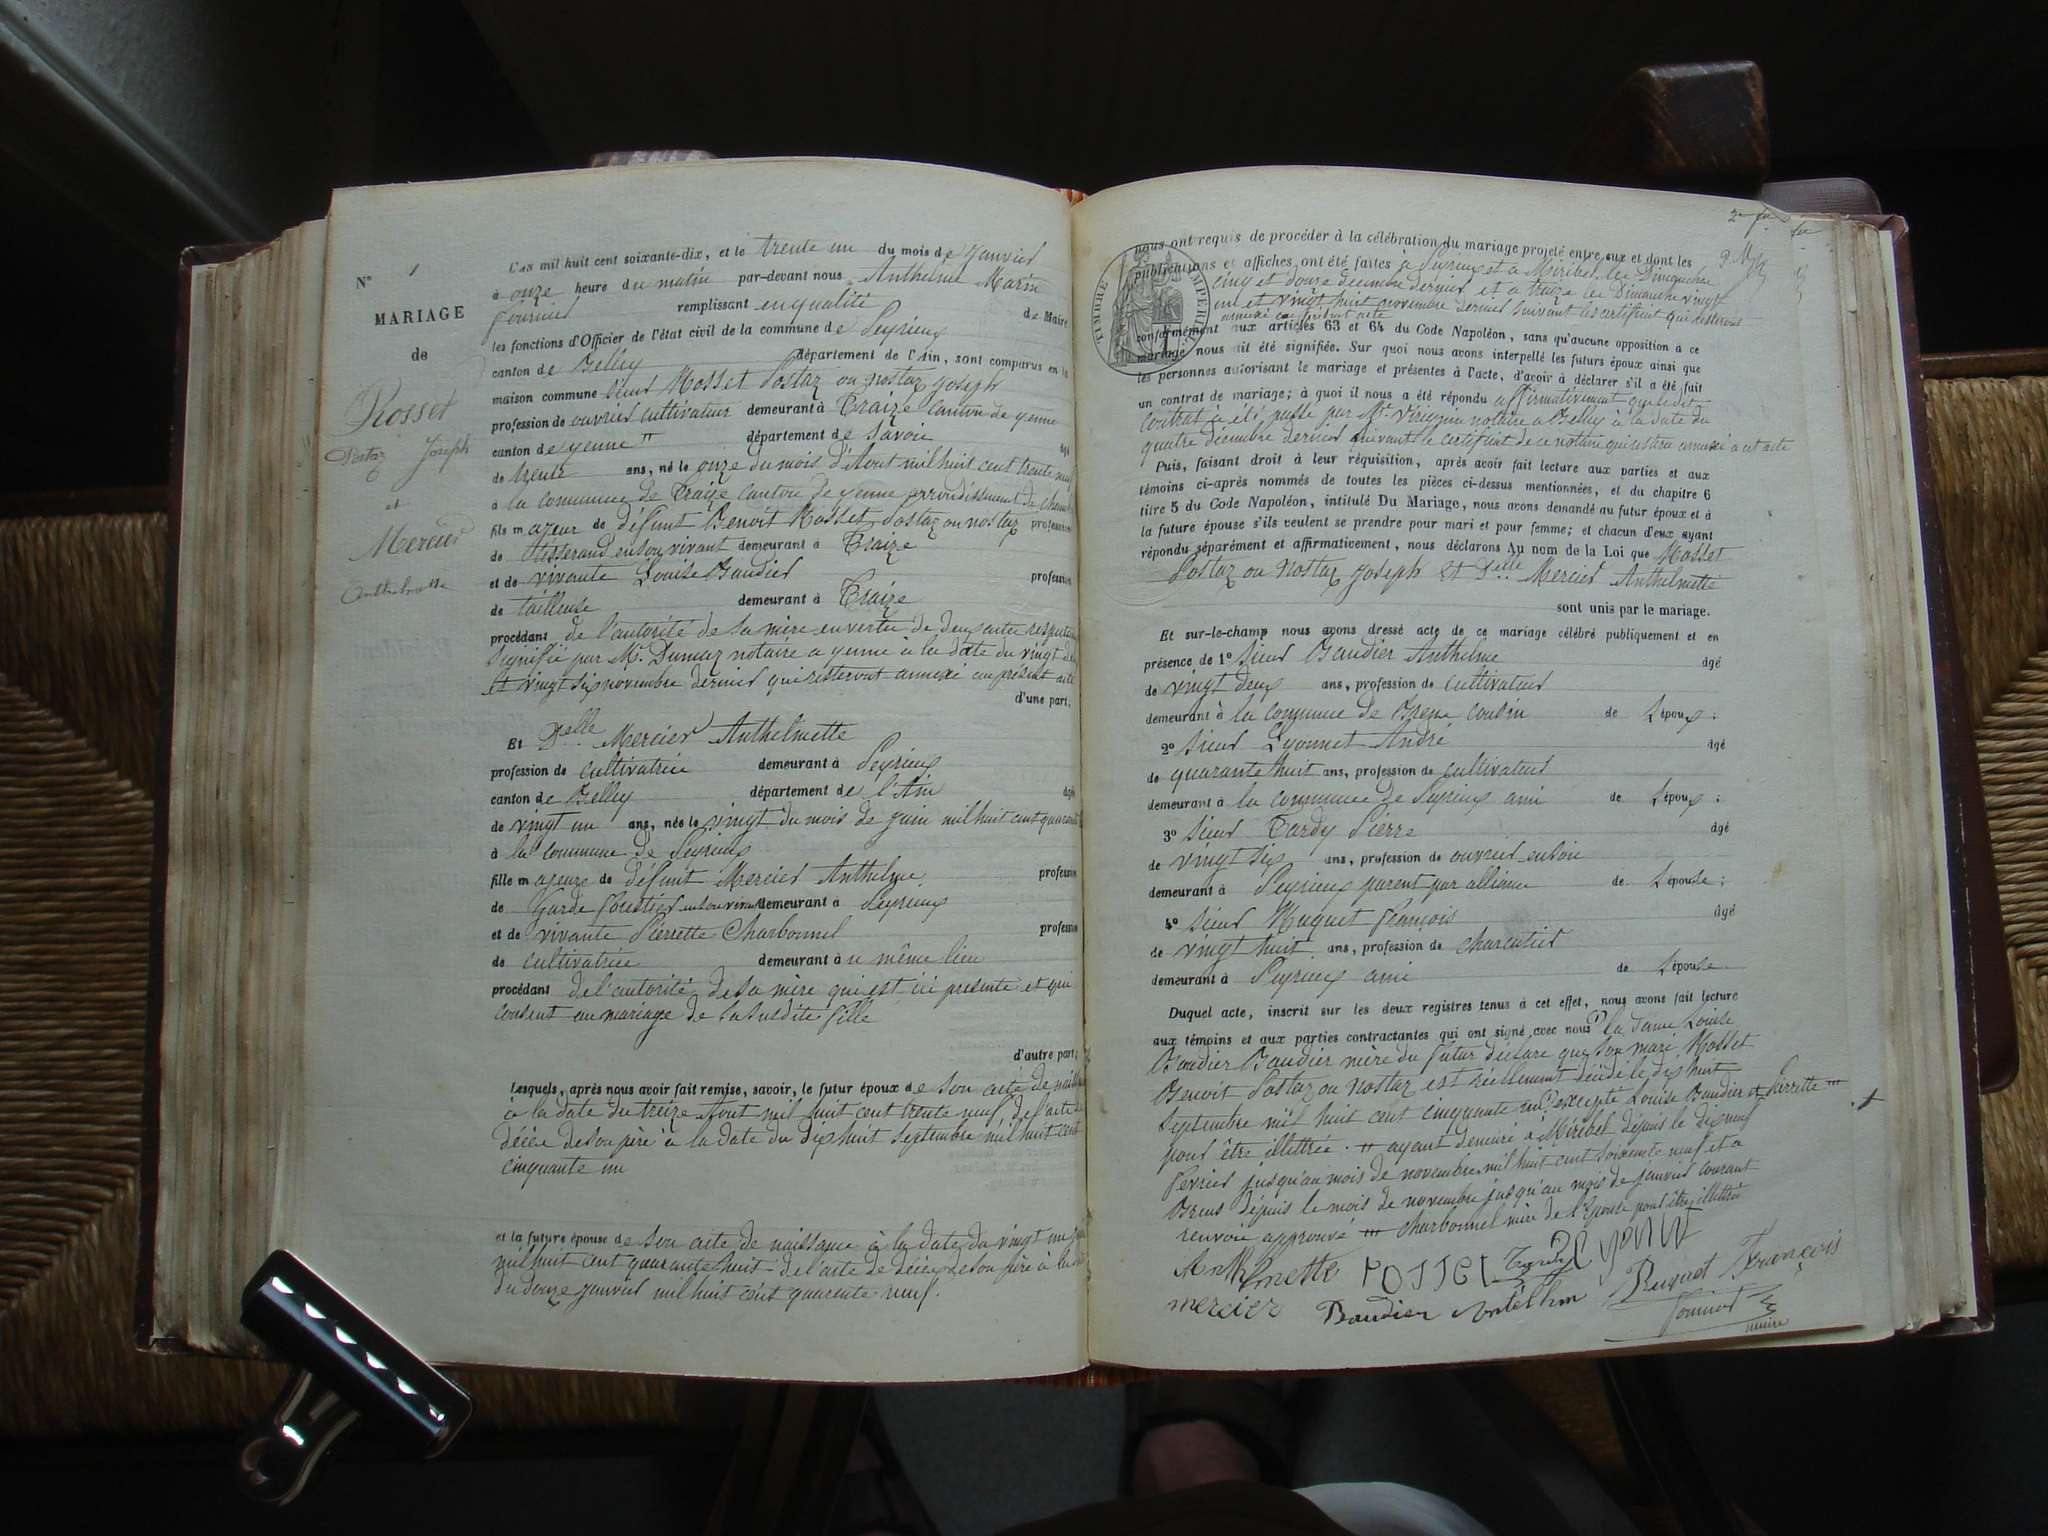 N° 1
MARIAGE
de
Rosset
Postaz Joseph
et
Mercier
Anthelmette
L'an mil huit cent soixante-dix, et le trente un du mois de Janvier
à onze heure du matin par-devant nous Anthelme Marin
fournier remplissant en qualité de Maire
les fonctions d'Officier de l'état civil de la commune de Peyrieux
canton de Belley département de l'Ain, sont comparus en la
maison commune sieur Rosset Postaz ou nostaz Joseph
profession de ouvrier cultivateur demeurant à Traize canton de yenne
canton de yenne " département de Savoie âgé
de trente ans, né le onze du mois d'Aout mil huit cent trente neuf
à la commune de Traize canton de yenne arrondissement de
fils majeur de défunt Benoit Rosset Postaz ou nostaz profession
de tisserand en son vivant demeurant à Traize
et de vivante Louise Baudier profession
de tailleuse demeurant à Traize
procédant de l'autorité de sa mère en vertu de deux actes
signifié par Mr. Dumaz notaire a yenne à la date du vingt
et vingt six novembre dernier qui resteront annexé au présent acte
d'une part;
Et Delle Mercier Anthelmette
profession de cultivatrice demeurant à Peyrieux
canton de Belley département de l'Ain âgée
de vingt un ans, née le vingt du mois de juin mil huit cent quarante
à la commune de Peyrieux
fille majeure de défunt Mercier Anthelme profession
de Garde forestier en son vivant demeurant à Peyrieux
et de vivante Pierrette Charbonnel profession
de cultivatrice demeurant à u même lieu
procédant de l'autorité de sa mère qui est ici présente et qui
consent au mariage de sa susdite fille
d'autre part;
Lesquels, après nous avoir fait remise, savoir, le futur époux de son acte de
à la date du treize Aout mil huit cent trente neuf, de l'acte de
décès de son père à la date du dix huit septembre mil huit cent
cinquante un
et la future épouse de son acte de naissance à la date du vingt un
mil huit cent quarante huit de l'acte de décès de son père à la
du douze janvier mil huit cent quarante neuf.
TIMBRE IMPERIAL
nous ont requis de procéder à la célébration du mariage projeté entre eux et dont les
publications et affiches ont été faites à Peyrieux et a Miribel les Dimanches
cinq et douze décembre dernier et a traize les Dimanche vingt
un et vingt huit novembre dernier suivant les certificat qui resteront
annexé au présent acte
conformément aux articles 63 et 64 du Code Napoléon, sans qu'aucune opposition à ce
mariage nous ait été signifiée. Sur quoi nous avons interpellé les futurs époux ainsi que
les personnes autorisant le mariage et présentes à l'acte, d'avoir à déclarer s'il a été fait
un contrat de mariage; à quoi il nous a été répondu affirmativement que le dit
contrat a été passé par Mr. notaire a Belley à la date du
quatre décembre dernier suivant le certificat de ce notaire qui restera annexé a cet acte
Puis, faisant droit à leur réquisition, après avoir fait lecture aux parties et aux
témoins ci-après nommés de toutes les pièces ci-dessus mentionnées, et du chapitre 6
titre 5 du Code Napoléon, intitulé Du Mariage, nous avons demandé au futur époux et à
la future épouse s'ils veulent se prendre pour mari et pour femme; et chacun d'eux ayant
répondu séparément et affirmativement, nous déclarons Au nom de la Loi que Rosset
Postaz ou nostaz Joseph et Delle Mercier Anthelmette
sont unis par le mariage.
Et sur-le-champ nous avons dressé acte de ce mariage célébré publiquement et en
présence de 1° sieur Baudier Anthelme âgé
de vingt deux ans, profession de cultivateur
demeurant à la commune de cousin de l'époux;
2° sieur Lyonnet André âgé
de quarante huit ans, profession de cultivateur
demeurant à la commune de Peyrieux ami de l'époux;
3° sieur Tardy Pierre âgé
de vingt six ans, profession de ouvrier en soie
demeurant à Peyrieux parent par alliance de l'épouse;
4° sieur Huguet françois âgé
de vingt huit ans, profession de charcutier
demeurant à Peyrieux ami de l'épouse
Duquel acte, inscrit sur les deux registres tenus à cet effet, nous avons fait lecture
aux témoins et aux parties contractantes qui ont signé avec nous la Dame Louise
Baudier Baudier mère du futur déclare que son mari Rosset
Benoit Postaz ou nostaz est réellement décédé le dix huit
septembre mil huit cent cinquante un excepté Louise Baudier et Pierrette "'
pour être illettrée. " ayant demeuré a Miribel dépuis le dix neuf
fevrier jusqu'au mois de novembre mil huit cent soixante neuf et a
dépuis le mois de novembre jusqu'au mois de janvier courant
renvoie approuvé "' charbonnel mère de l'épouse pour être illettrée
Anthlmette rosset
mercier Baudier Huguet François
fournier
maire